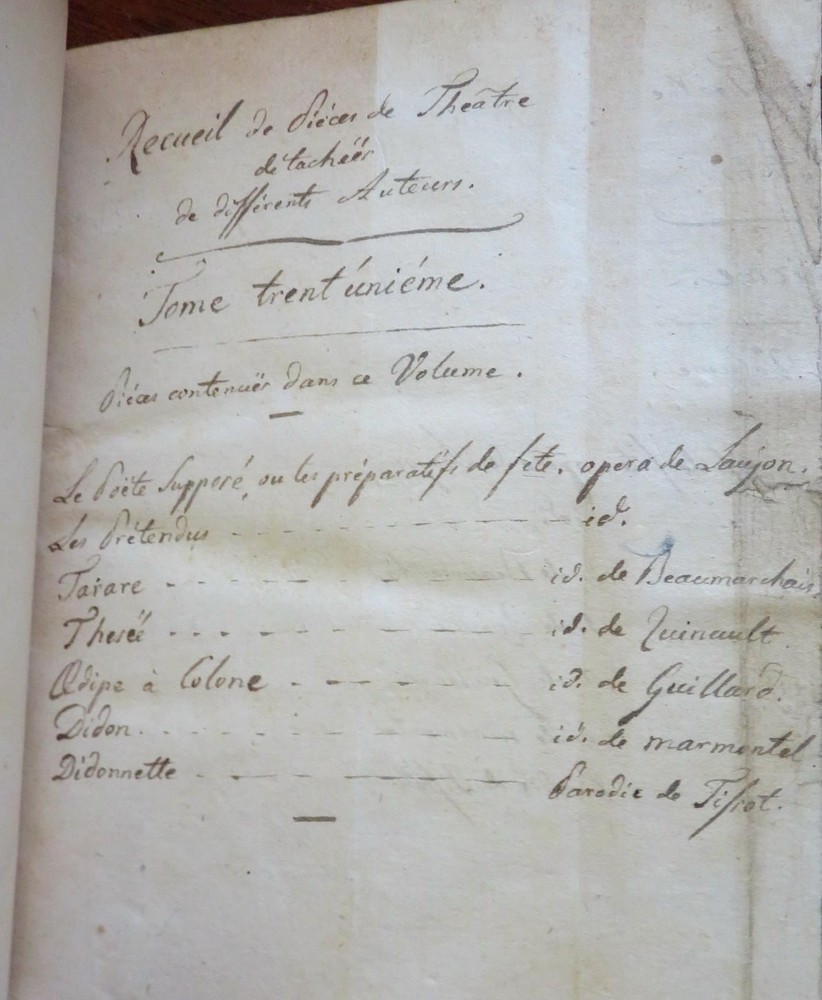 Recueil de Piéces de Theâtre
détacheës
de différents Auteurs.
Tome trent'uniéme.
Piéces contenuës dans ce Volume.
Le Poëte Supposé, ou les préparatifs de fete. opera de Laujon.
Les Prétendus - - - - - - - - id.
Tarare - - - - - - - - id. de Beaumarchais.
Theseë - - - - - - - - id. de Quinault
Œdipe à Colone - - - - - - id. de Guillard.
Didon. - - - - - - - - id. de marmontel.
Didonnette - - - - - - Parodie de Tissot.